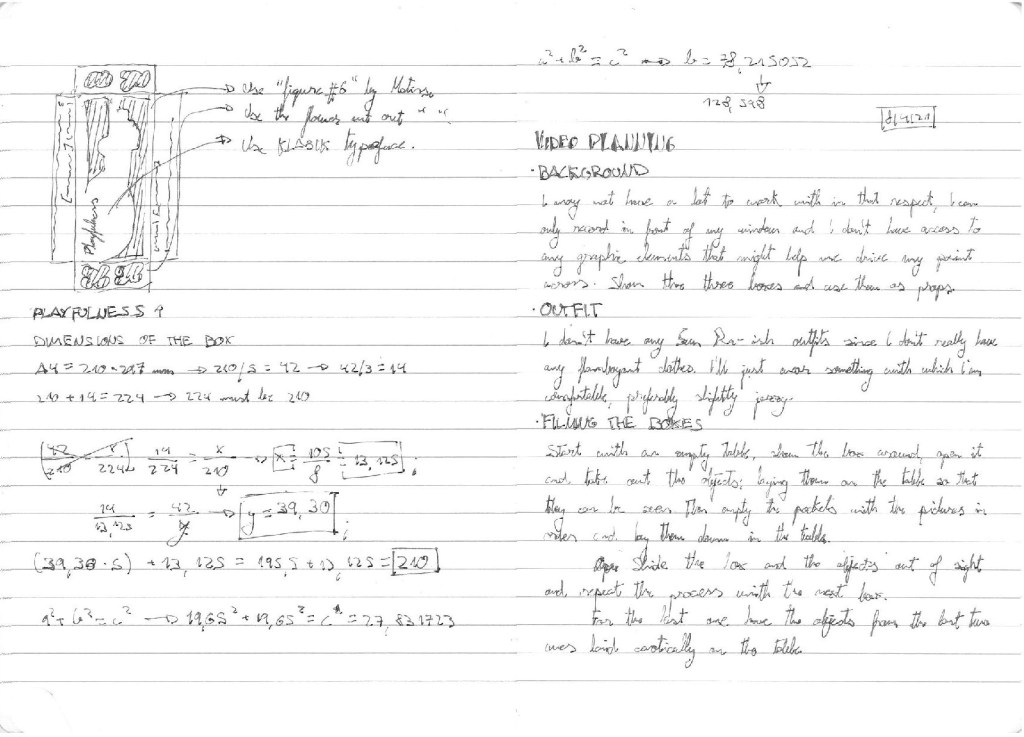 Use "figure #6" by Matisse
Use the flowers cut out " ".
Use KLABIK typeface.
Playfulness
PLAYFULNESS ↑
DIMENSIONS OF THE BOX
A4 = 210 × 297 mm → 210/5 = 42 → 42/3 = 14
210 + 14 = 224 → 224 must be 210
42/210 = x/224
14/224 = x/210 → x = 105/8 = 13,125 ;
14/13,125 = 42/y → y = 39,30 ;
(39,30 · 5) + 13,125 = 195,5 + 13,125 = 210
a² + b² = c² → 19,65² + 19,65² = c² = 27,831723
a² + b² = c² → b = 78,215052
↓
128,398
8/4/20
VIDEO PLANNING
· BACKGROUND
I may not have a lot to work with in that respect, I can
only record in front of my window and I don't have access to
any graphic elements that might help me drive my point
across. Show the three boxes and use them as props.
· OUTFIT
I don't have any Sun Ra-ish outfits since I don't really have
any flamboyant clothes. I'll just wear something with which I'm
comfortable, preferably slightly jazzy.
· FILMING THE BOXES
Start with an empty table, show the box around, open it
and take out the objects; laying them on the table so that
they can be seen. Then empty the pockets with the pictures in
order and lay them down in the table.
Slide the box and the objects out of sight
and repeat the process with the next box.
For the last one, have the objects from the last two
ones laid caotically on the table.